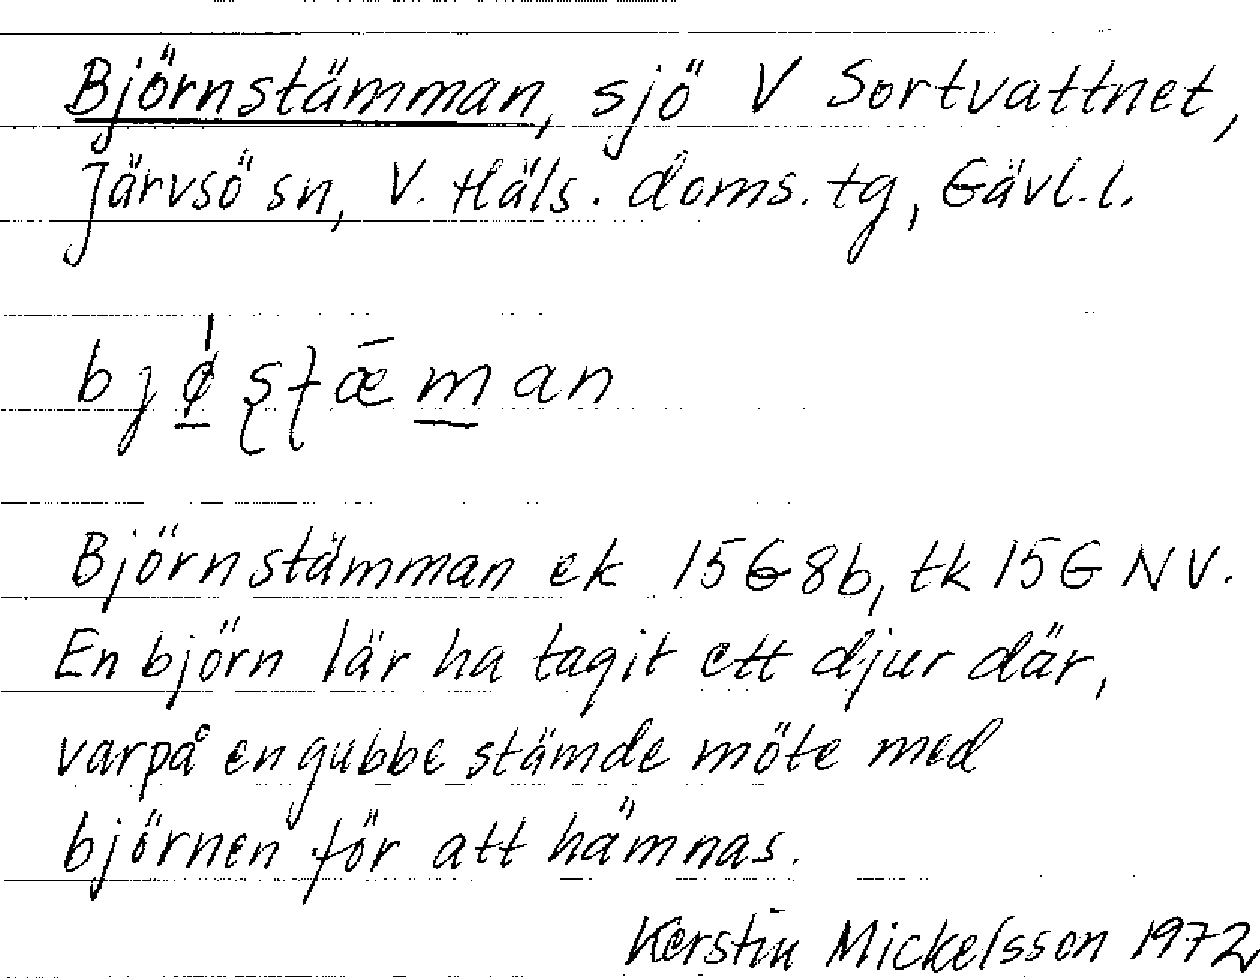 Björnstämman, sjö V Sortvattnet,
Järvsö sn, V. Häls. doms. tg, Gävl. l.
Björnstämman ek 15G8b, tk 15G NV.
En björn lär ha tagit ett djur där,
varpå en gubbe stämde möte med
björnen för att hämnas.
Kerstin Mickelsson 1972